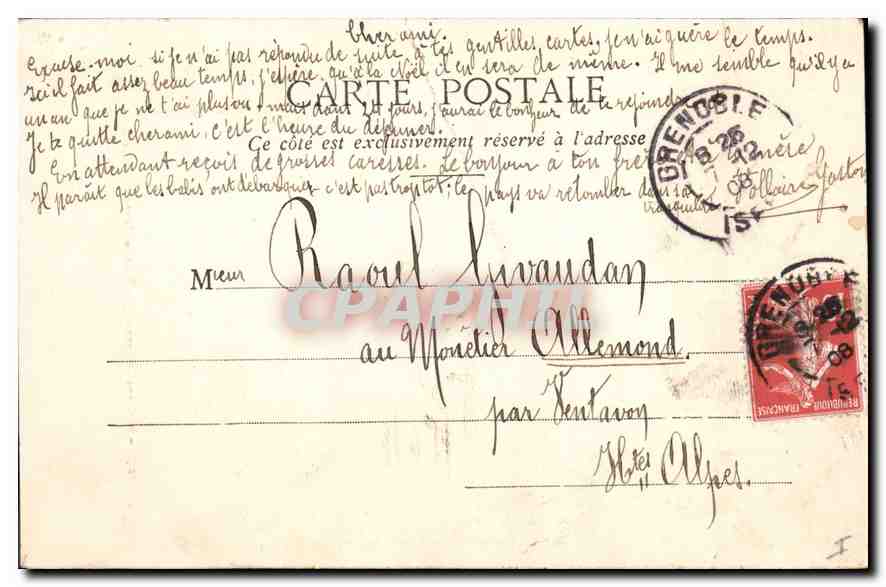 Cher ami.
Excuse-moi si je n'ai pas répondu de suite à tes gentilles cartes, je n'ai guère le temps.
Ici il fait assez beau temps, j'espère qu'à la Noël il en sera de même. Il me semble qu'il y a
un an que je ne t'ai plus vu mais dans jours, j'aurai le bonheur de te rejoindre
CARTE POSTALE
Je te quitte cher ami, c'est l'heure du déjeuner.
Ce côté est exclusivement réservé à l'adresse
En attendant reçois de grosses caresses. Le bonjour à ton frère
Il paraît que les bébés ont débarqué, c'est pas trop tôt; le pays va retomber dans sa Gaston
GRENOBLE
8 26
12
08
ISE
Mieur Raoul Givaudan
CPAPHIL
au Monêtier Allemond.
par Ventavon
Htes Alpes.
GRENOBLE
12
08
REPUBLIQUE FRANÇAISE
I